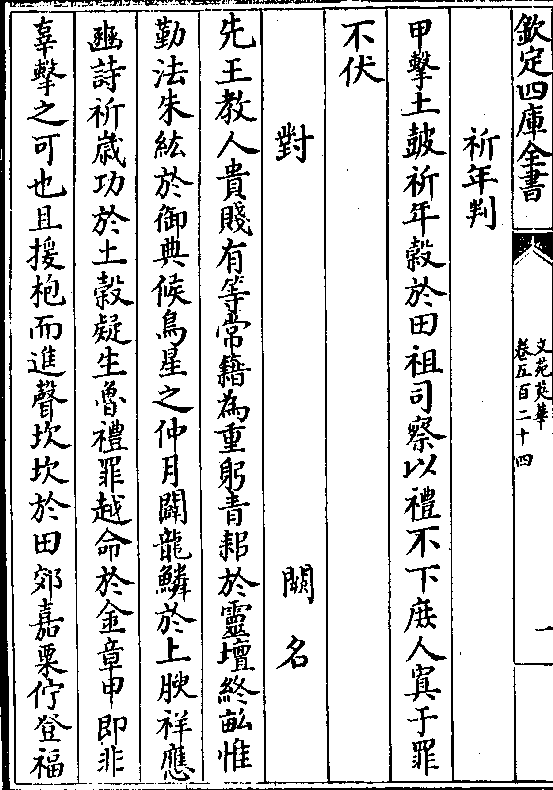 欽定四庫全書
文苑英華
卷五百二十四
一
祈年判
甲擊土鼓祈年穀於田祖司察以禮不下庶人寘于罪
不伏
對 闕名
先王敎人貴賤有等常籍為重躬青耜於靈壇終畝惟
勤法朱紘於御典候鳥星之仲月闢龍鱗於上腴祥應
豳詩祈歲功於土榖疑生魯禮罪越命於金章申即非
辜擊之可也且援枹而進聲坎坎於田郊嘉栗佇登福